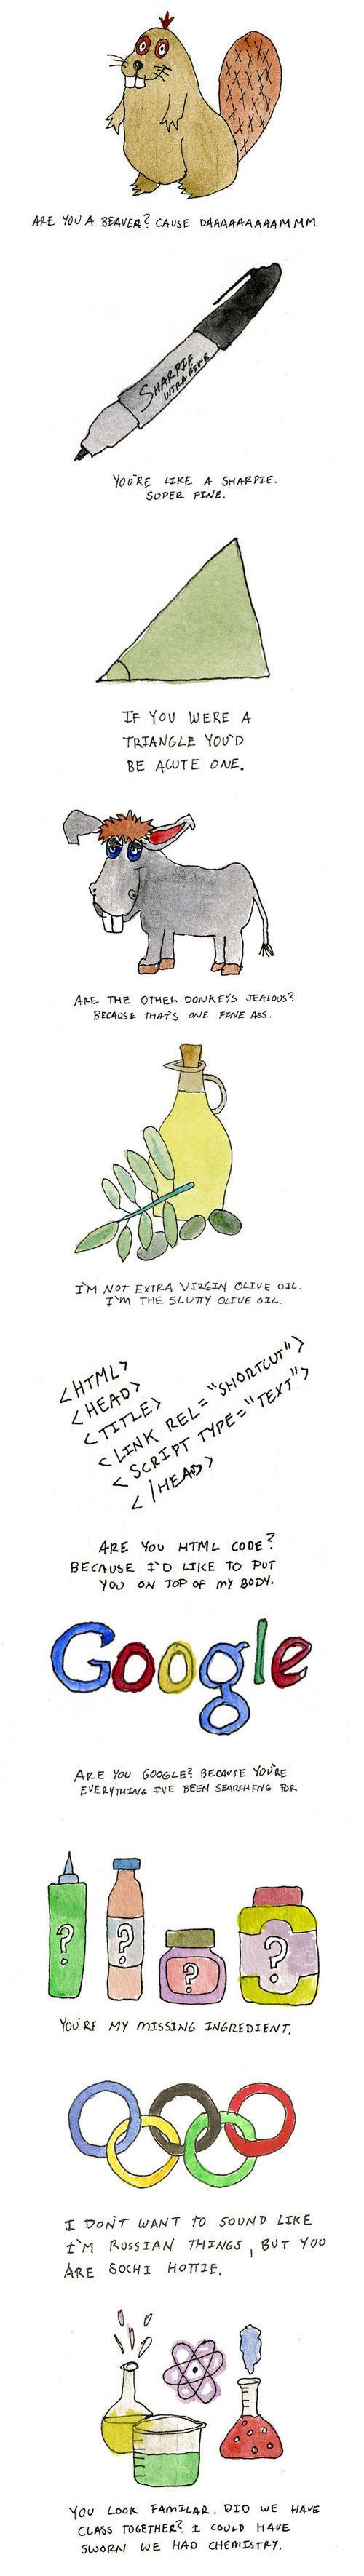 ARE YOU A BEAVER? CAUSE DAAAAAAAAAMMM
SHARPIE
ULTRA FINE
YOU'RE LIKE A SHARPIE.
SUPER FINE.
IF YOU WERE A
TRIANGLE YOU'D
BE ACUTE ONE.
ARE THE OTHER DONKEYS JEALOUS?
BECAUSE THAT'S ONE FINE ASS.
I'M NOT EXTRA VIRGIN OLIVE OIL.
I'M THE SLUTTY OLIVE OIL.
<HTML>
<HEAD>
<TITLE>
<LINK REL="SHORTCUT">
<SCRIPT TYPE="TEXT">
</HEAD>
ARE YOU HTML CODE?
BECAUSE I'D LIKE TO PUT
YOU ON TOP OF MY BODY.
Google
ARE YOU GOOGLE? BECAUSE YOU'RE
EVERYTHING I'VE BEEN SEARCHENG FOR
? ? ? ?
YOU'RE MY MISSING INGREDIENT.
I DON'T WANT TO SOUND LIKE
I'M RUSSIAN THINGS, BUT YOU
ARE SOCHI HOTTIE.
YOU LOOK FAMILAR. DID WE HAVE
CLASS TOGETHER? I COULD HAVE
SWORN WE HAD CHEMISTRY.